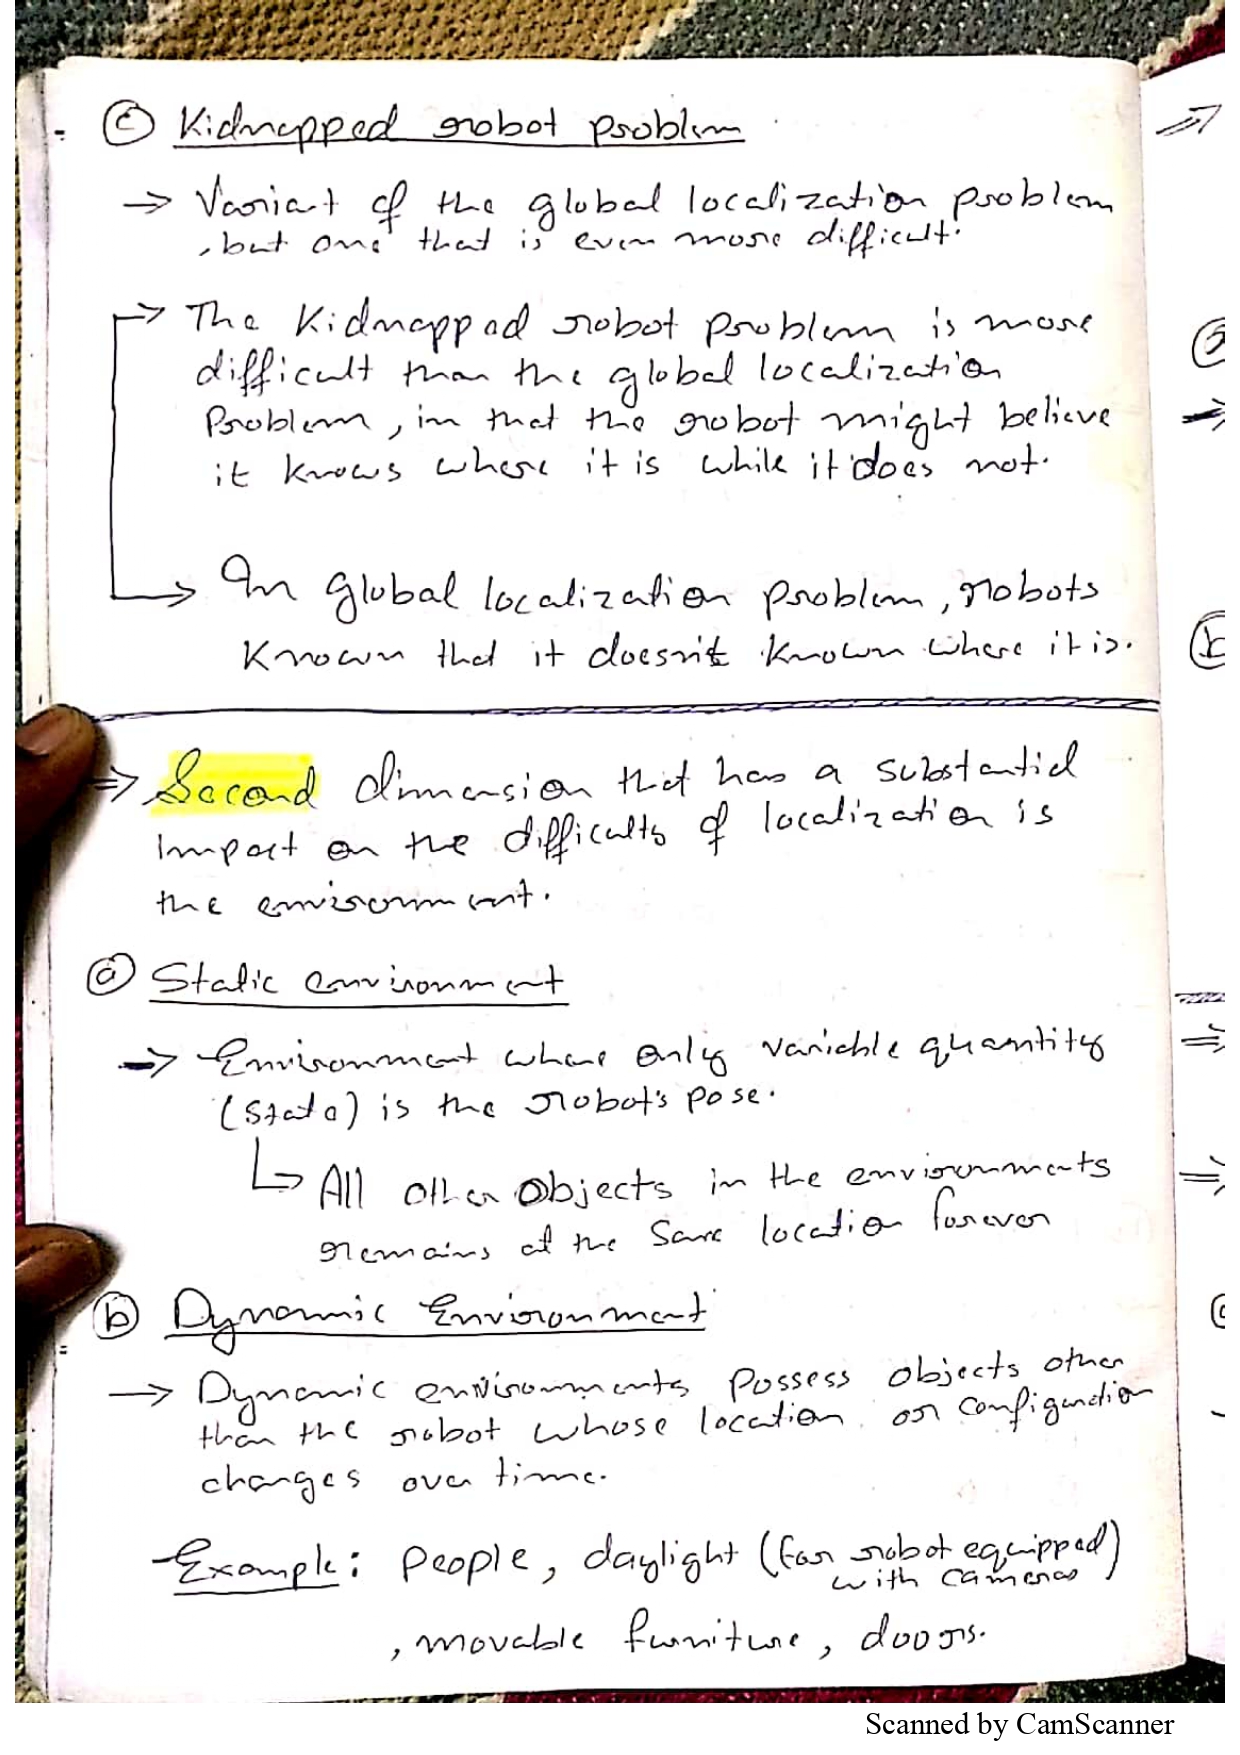 ⓒ Kidnapped robot problem
→ Variant of the global localization problem
, but one that is even more difficult.
→ The Kidnapped robot problem is more
difficult than the global localization
Problem, in that the robot might believe
it knows where it is while it does not.
→ In global localization problem, robots
Known that it doesn't known where it is.
⇒ Second dimension that has a substantial
impact on the difficulty of localization is
the environment.
ⓐ Static environment
→ Environment where only variable quantity
(state) is the robot's pose.
↳ All other objects in the environments
remains at the same location forever
ⓑ Dynamic Environment
→ Dynamic environments possess objects other
than the robot whose location or configuration
changes over time.
Example: People, daylight (for robot equipped
with cameras)
, movable furniture, doors.
Scanned by CamScanner